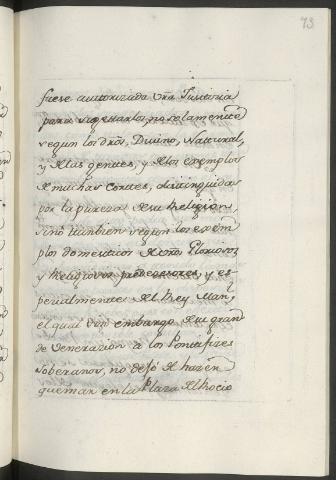 73
fuese autorizada vrã Justicia
para sugetarlos, no solamente
segun los dros, Divino, Natural,
y de las gentes, y de los exemplos
de muchas Cortes, distinguidas
por la pureza de su Religion,
sino tambien segun los exem
plos domesticos de vrõs Gloriosos
y Religiosos predecesores, y es
pecialmente del Rey Manl
el qual sin embargo de su gran
de veneracion a los Pontifizes
soberanos, no dejó de hazer
quemar en la Plaza del Rocio